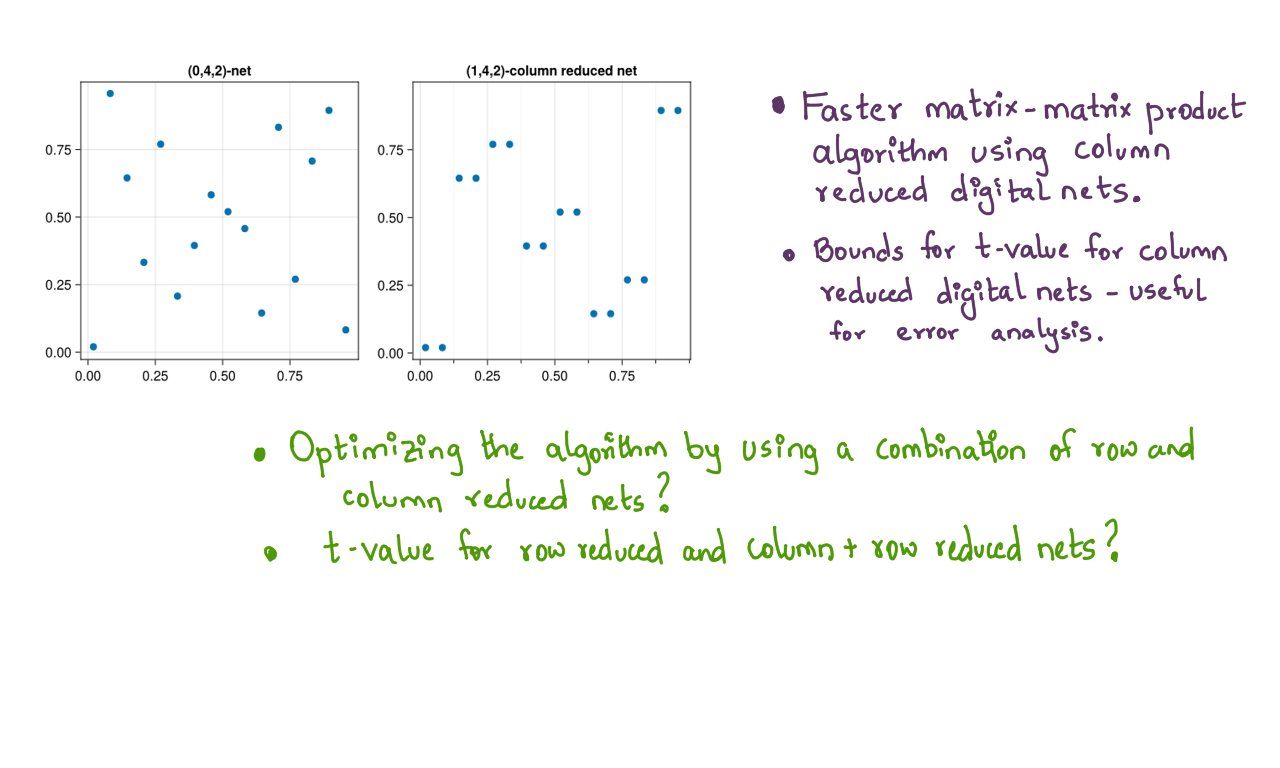 (0,4,2)-net
0.75
0.50
0.25
0.00
0.00 0.25 0.50 0.75
(1,4,2)-column reduced net
0.75
0.50
0.25
0.00
0.00 0.25 0.50 0.75
• Faster matrix-matrix product
algorithm using column
reduced digital nets.
• Bounds for t-value for column
reduced digital nets - useful
for error analysis.
• Optimizing the algorithm by using a combination of row and
column reduced nets?
• t-value for row reduced and column + row reduced nets?